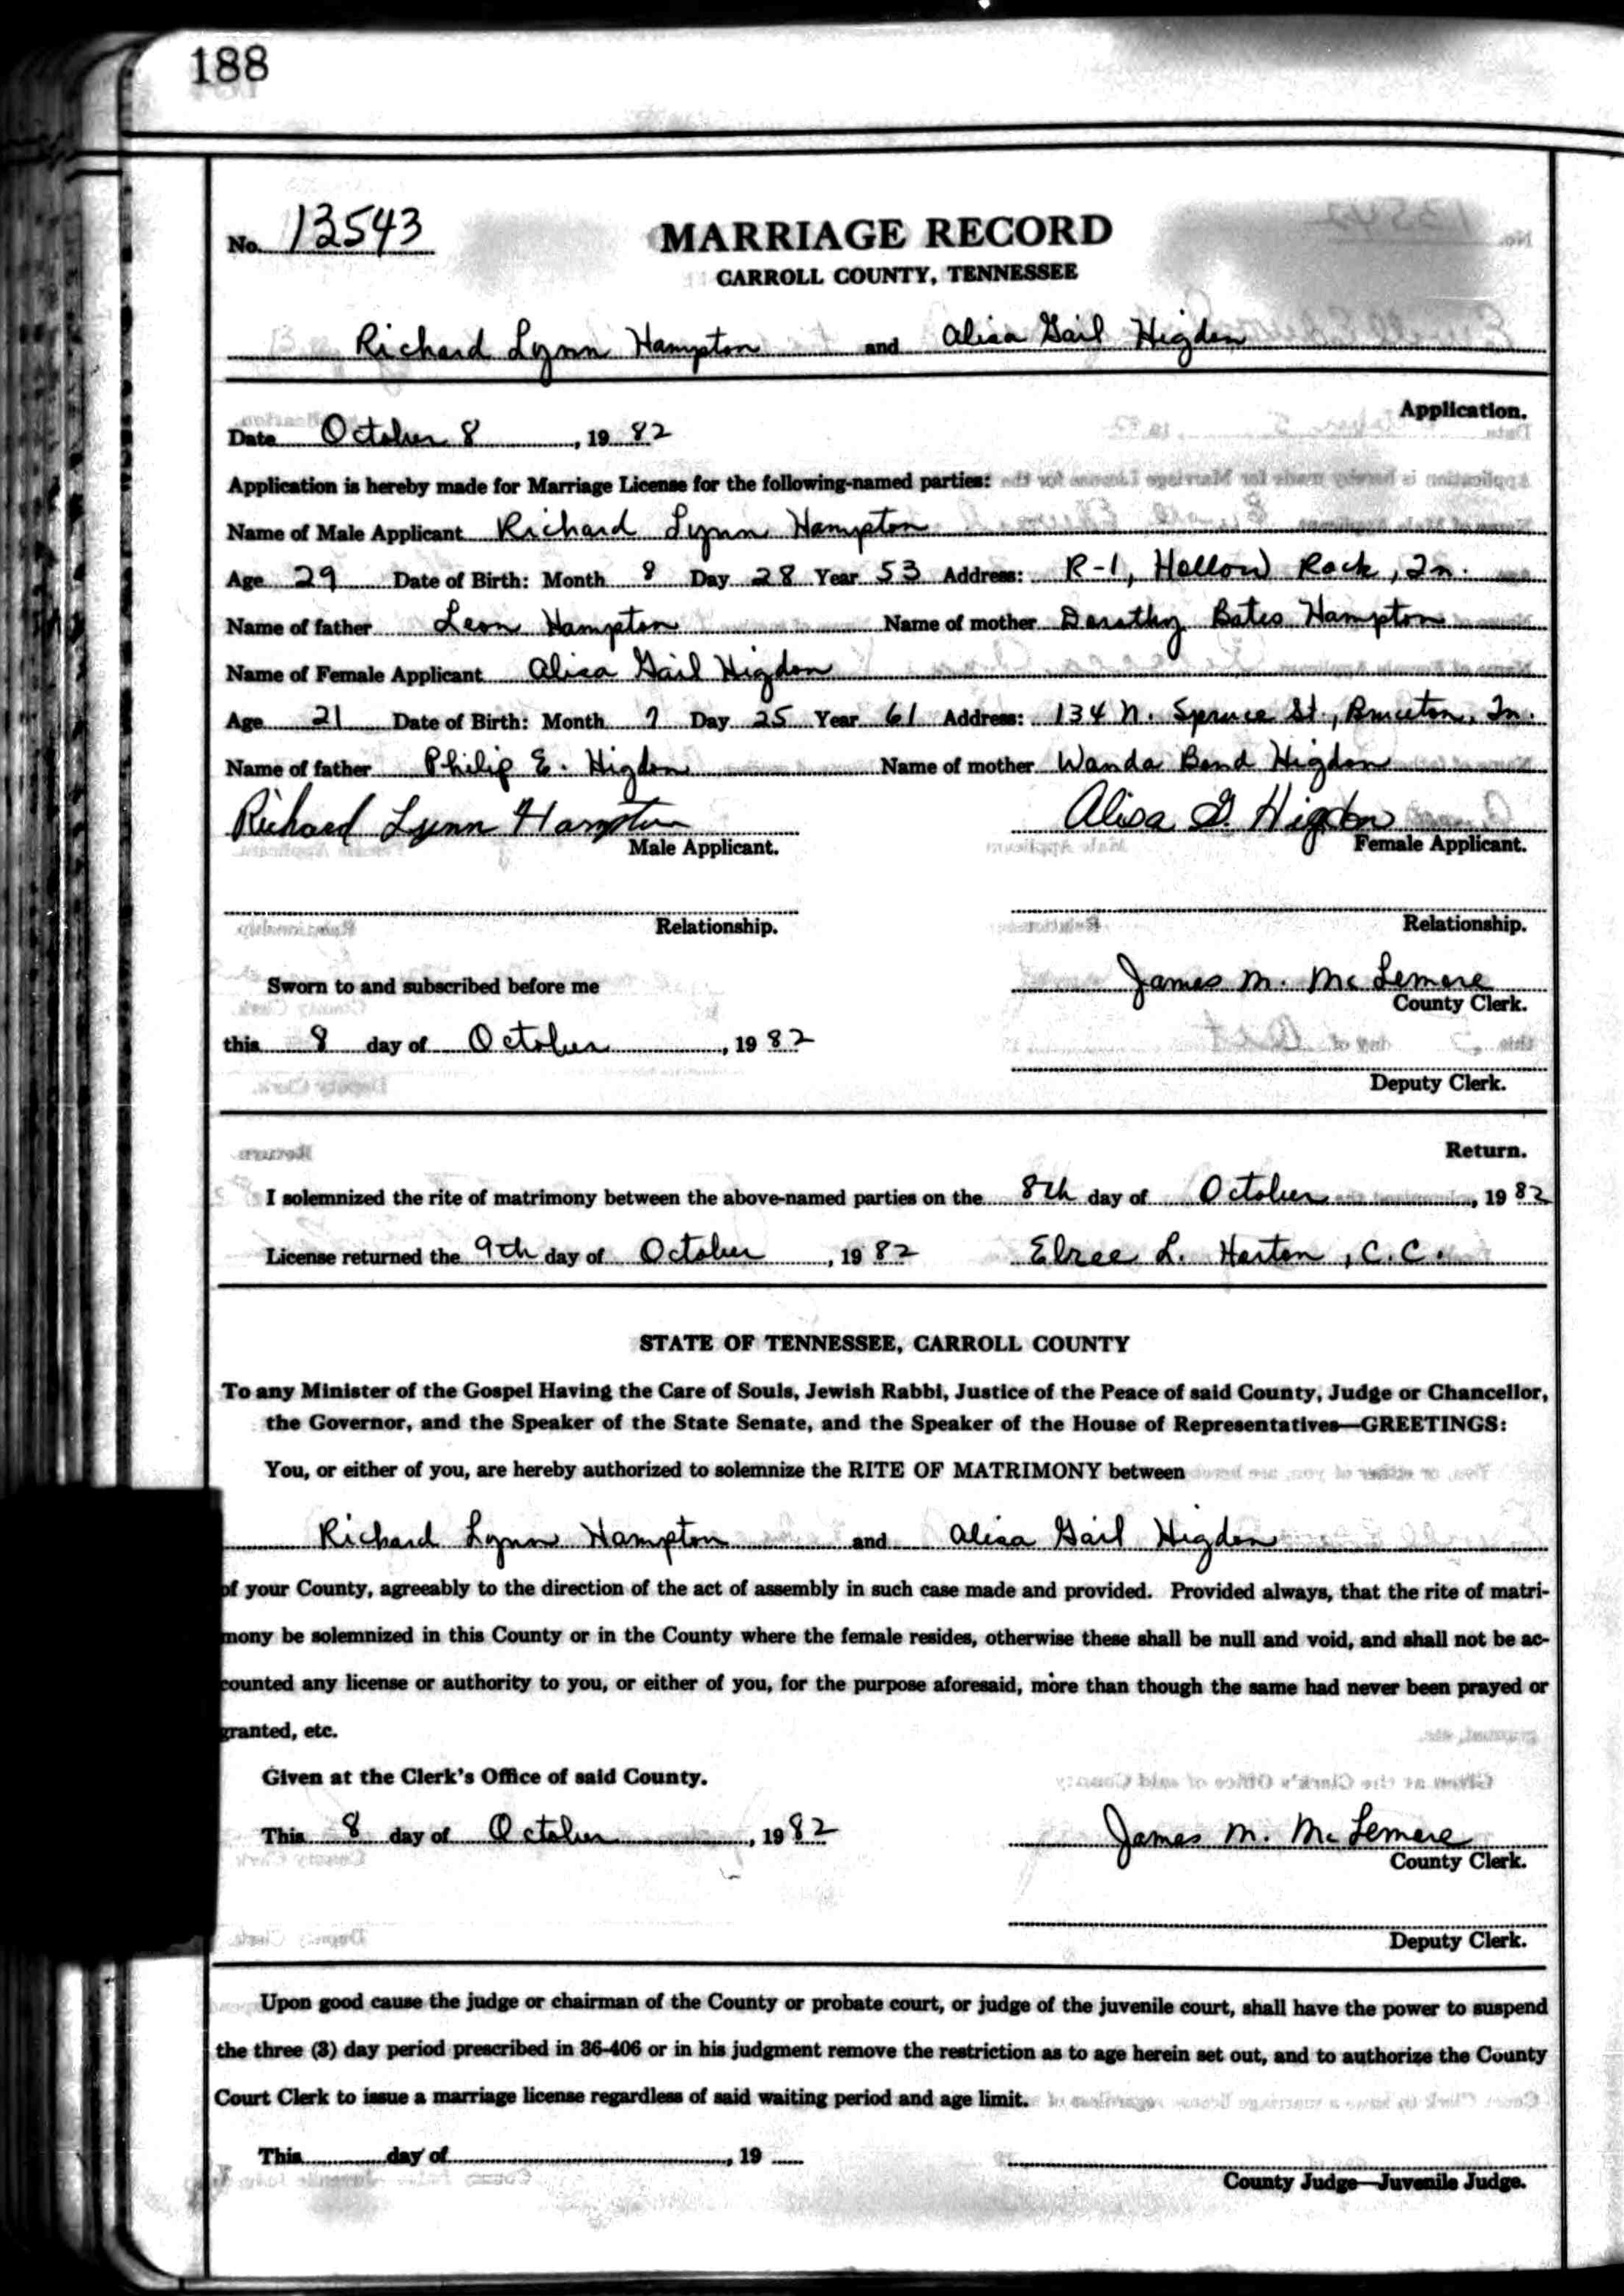 188
No. 13543
MARRIAGE RECORD
CARROLL COUNTY, TENNESSEE
Richard Lynn Hampton and Alisa Gail Higdon
Application.
Date October 8, 19 82
Application is hereby made for Marriage License for the following-named parties:
Name of Male Applicant Richard Lynn Hampton
Age 29 Date of Birth: Month 8 Day 28 Year 53 Address: R-1, Hollow Rock, Tn.
Name of father Leon Hampton Name of mother Dorothy Bates Hampton
Name of Female Applicant Alisa Gail Higdon
Age 21 Date of Birth: Month 7 Day 25 Year 61 Address: 134 N. Spruce St., Bruceton, Tn.
Name of father Philip E. Higdon Name of mother Wanda Bond Higdon
Richard Lynn Hampton Alisa G. Higdon
Male Applicant. Female Applicant.
Relationship. Relationship.
Sworn to and subscribed before me James M. McLemore
County Clerk.
this 8 day of October, 19 82
Deputy Clerk.
Return.
I solemnized the rite of matrimony between the above-named parties on the 8th day of October, 19 82
License returned the 9th day of October, 19 82 L. Horton, C.C.
STATE OF TENNESSEE, CARROLL COUNTY
To any Minister of the Gospel Having the Care of Souls, Jewish Rabbi, Justice of the Peace of said County, Judge or Chancellor,
the Governor, and the Speaker of the State Senate, and the Speaker of the House of Representatives—GREETINGS:
You, or either of you, are hereby authorized to solemnize the RITE OF MATRIMONY between
Richard Lynn Hampton and Alisa Gail Higdon
of your County, agreeably to the direction of the act of assembly in such case made and provided. Provided always, that the rite of matri-
mony be solemnized in this County or in the County where the female resides, otherwise these shall be null and void, and shall not be ac-
counted any license or authority to you, or either of you, for the purpose aforesaid, more than though the same had never been prayed or
granted, etc.
Given at the Clerk's Office of said County.
This 8 day of October, 19 82 James M. McLemore
County Clerk.
Deputy Clerk.
Upon good cause the judge or chairman of the County or probate court, or judge of the juvenile court, shall have the power to suspend
the three (3) day period prescribed in 36-406 or in his judgment remove the restriction as to age herein set out, and to authorize the County
Court Clerk to issue a marriage license regardless of said waiting period and age limit.
This day of , 19
County Judge—Juvenile Judge.